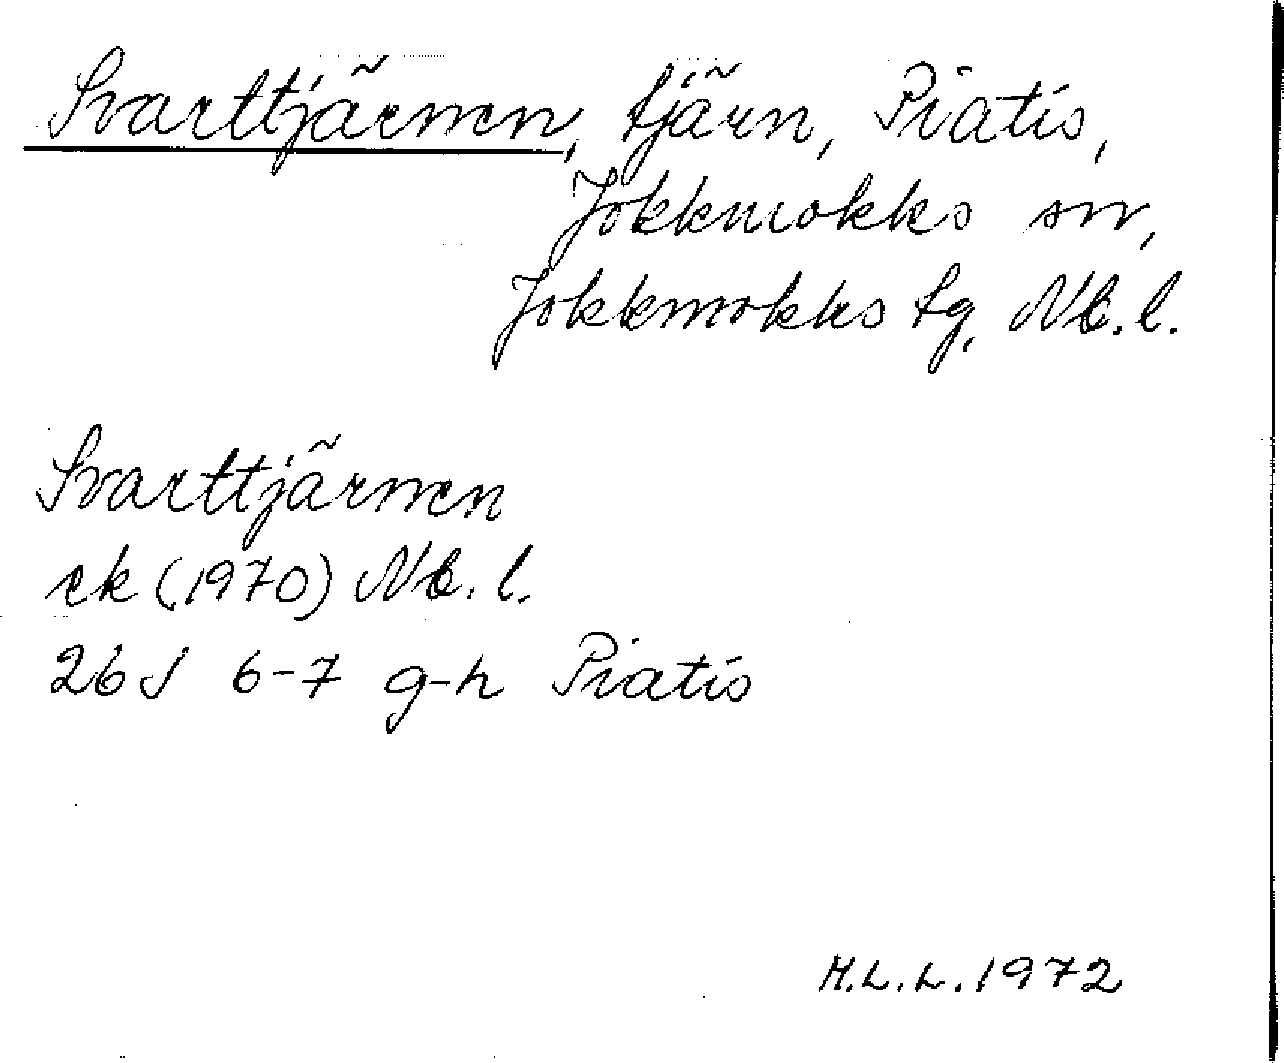 Svarttjärnen, tjärn, Piatis,
Jokkmokks sn,
Jokkmokks tg, Nb.l.
Svarttjärnen
ek (1970) Nb.l.
26J 6-7 g-h Piatis
H.L.L. 1972